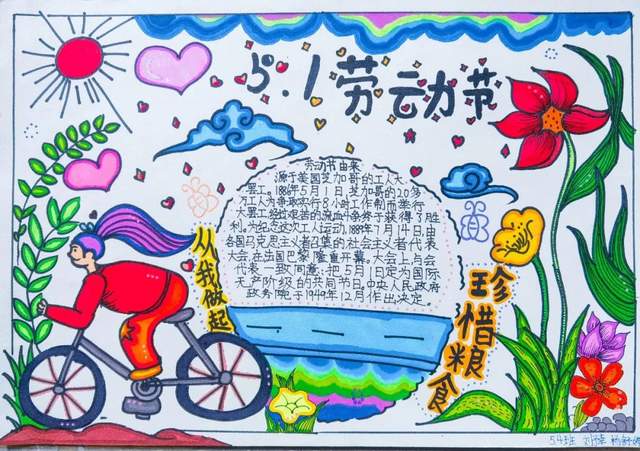 5.1劳动节
劳动节由来
源于美国芝加哥的工人大
罢工。1886年5月1日,芝加哥的20多
万工人为争取实行8小时工作制而举行
大罢工,经过艰苦的流血斗争,终于获得了胜
利。为纪念这次工人运动,1889年7月14日,由
各国马克思主义者召集的社会主义者代表
大会,在法国巴黎隆重开幕。大会上与会
代表一致同意:把5月1日定为国际
无产阶级的共同节日。中央人民政府
政务院于1949年12月作出决定。
从我做起
珍惜粮食
5.4班